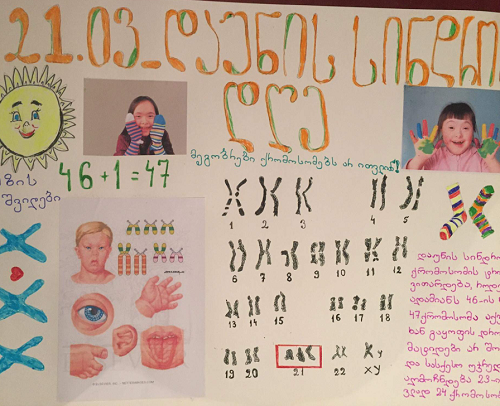 21.03_დაუნის სინდრო
დღე
მეგობრები ქრომოსომებს არ ითვლიან!
ზის
შვილები
46+1=47
1 2 3 4 5
6 7 8 9 10 11 12
13 14 15 16 17 18
19 20 21 22 xy
X y
დაუნის სინდრ
ქრომოსომის
ვითარდება,
ადამიანს 46-ის
47 ქრომოსომა აქვ
ხან გაყოფის დრო
მატიდები არ შო
და სასქესო უჯრედ
აღმოჩნდება 23-ი
ვლად 24 ქრომოსო